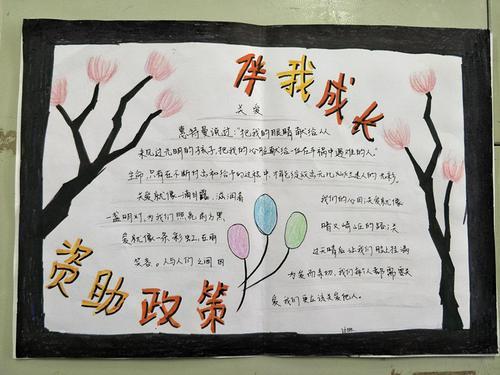 伴我成长
关爱
惠特曼说过:"把我的眼睛献给从
未见过光明的孩子,把我的心脏献给一位在车祸中遇难的人."
生命,只有在不断付出和给予的过程中,才能
关爱就像一滴甘露,滋润着
我们的心田;关爱就像
一盏明灯,为我们照亮前方黑
暗又崎岖的路;关
爱就像一条彩虹,在雨
过天晴后让我们脸上挂满
笑容。人与人们之间因
为爱而亲切,我们每个人都需要关
爱,我们更应该关爱他人。
资助政策